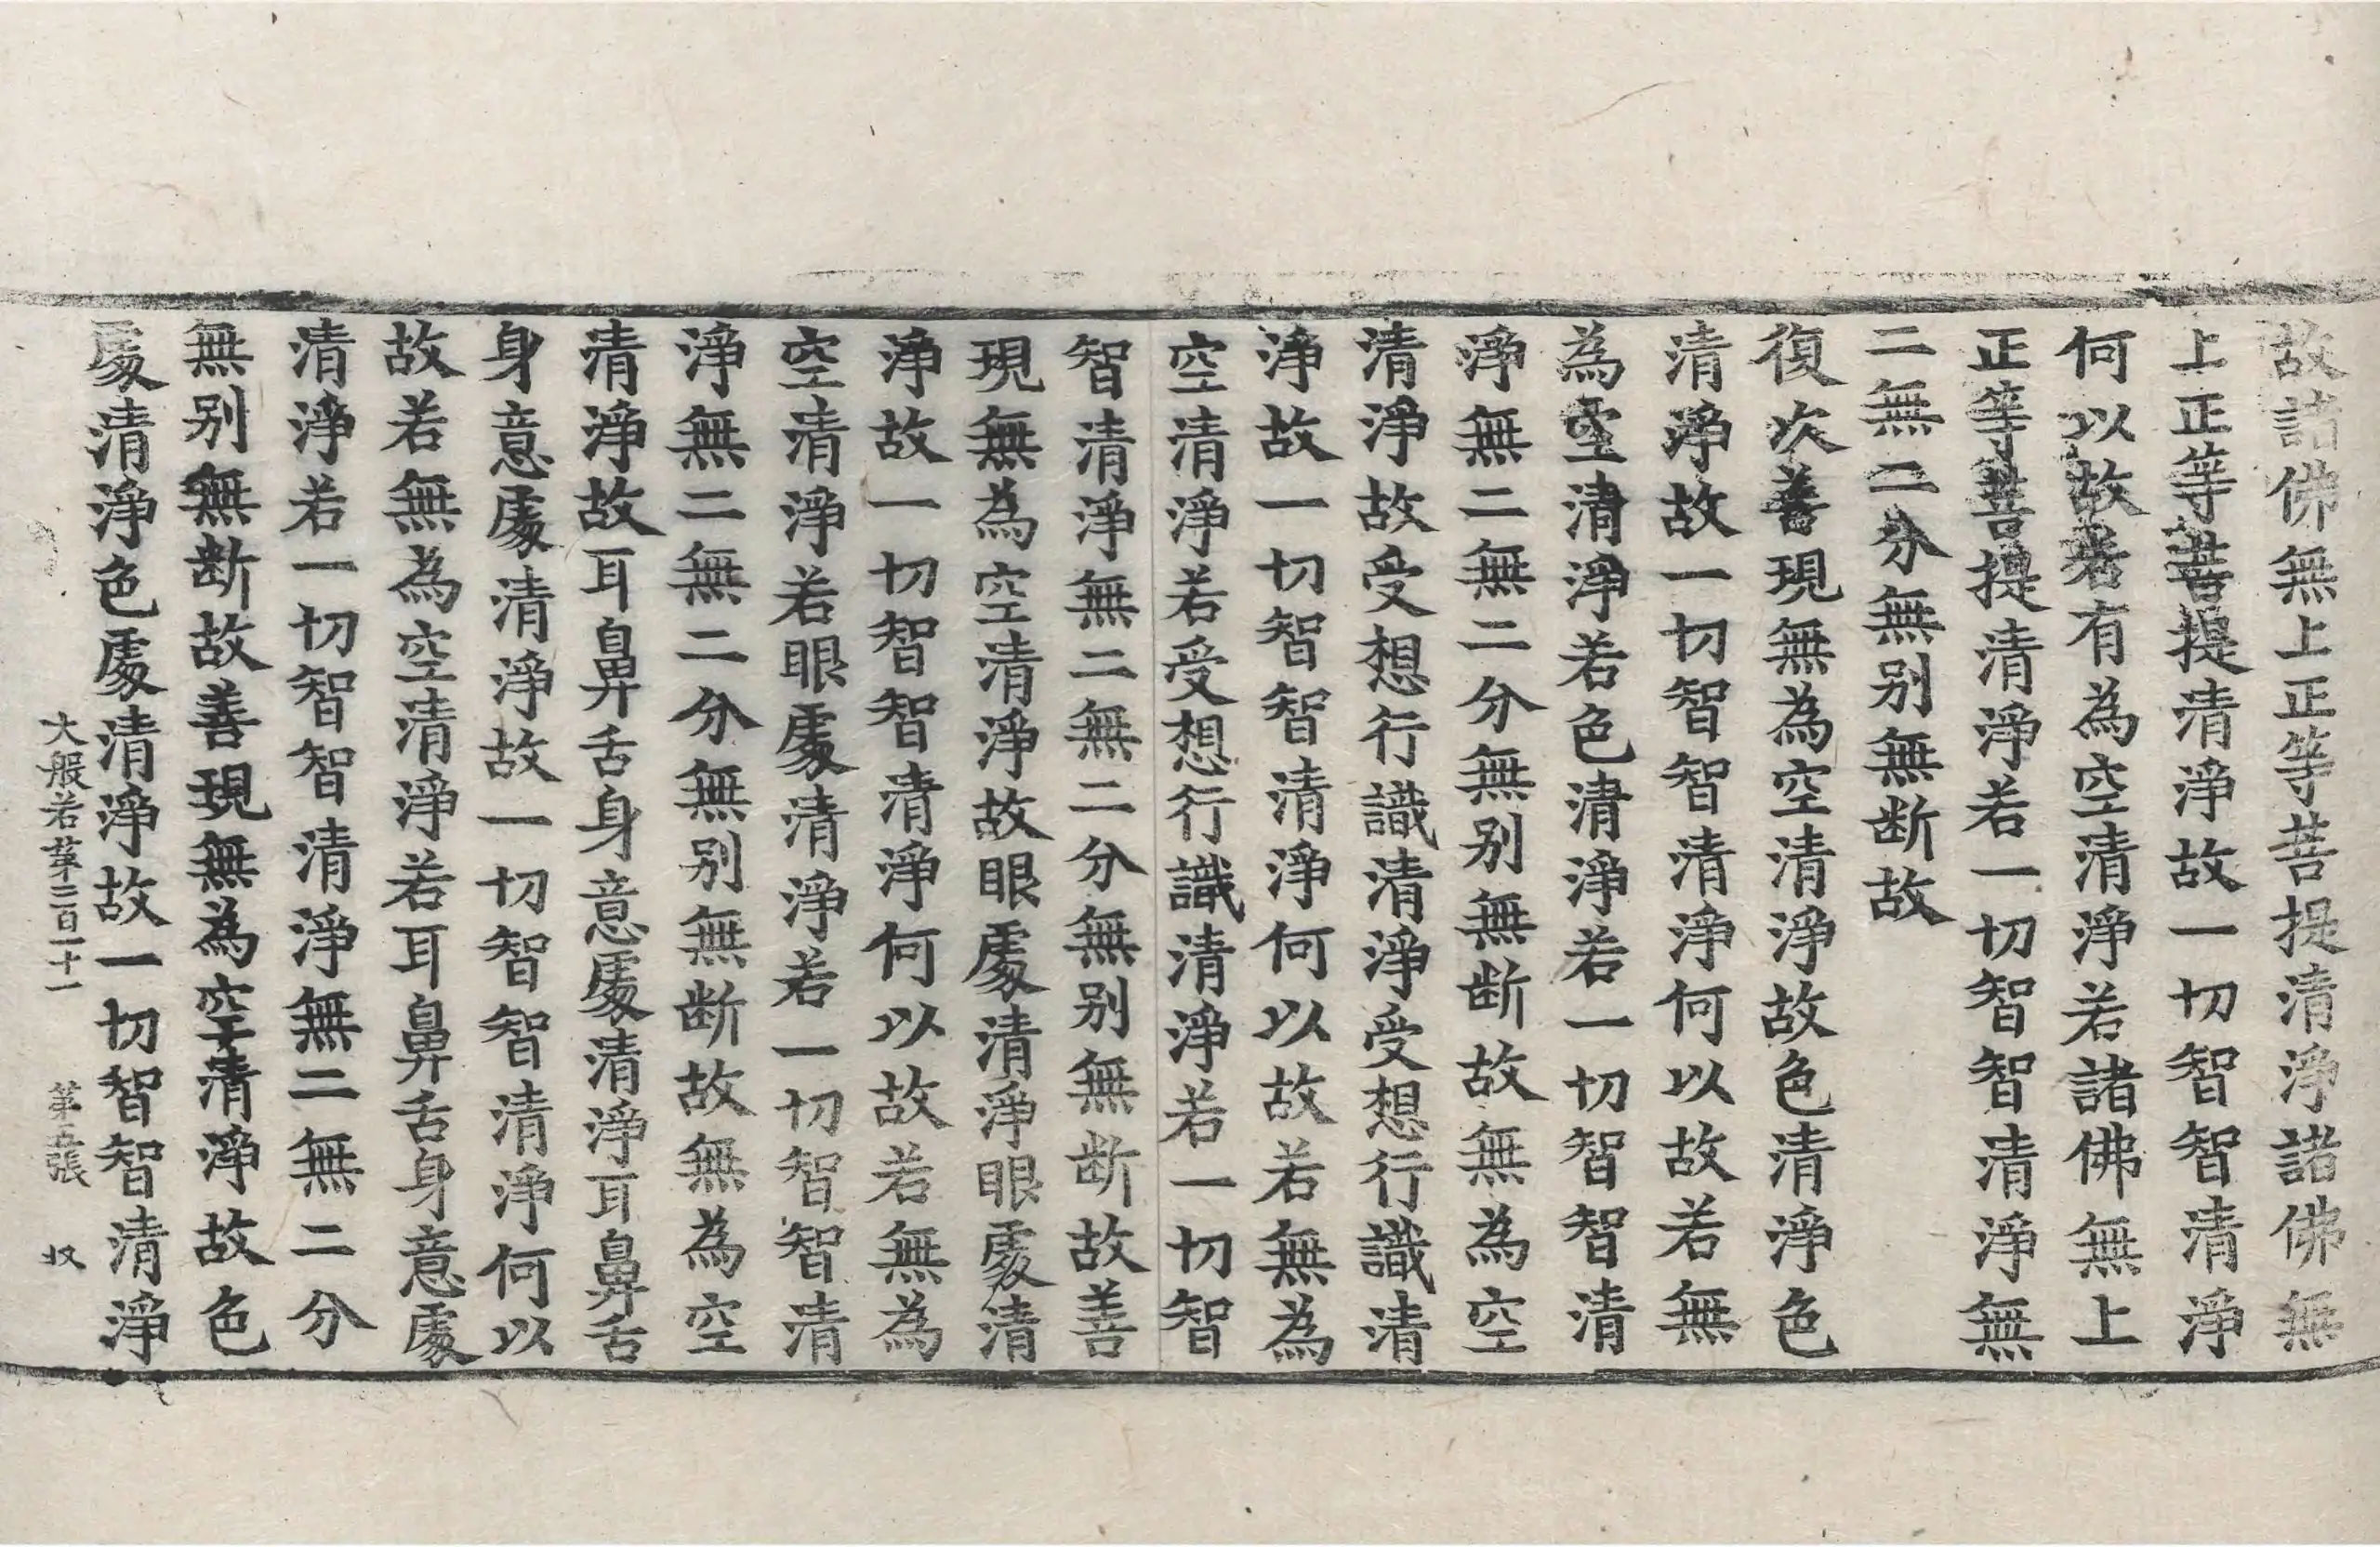 故諸佛無上正等菩提清淨諸佛無
上正等菩提清淨故一切智智清淨
何以故若有為空清淨若諸佛無上
正等菩提清淨若一切智智清淨無
二無二分無别無断故
復次善現無為空清淨故色清淨色
清淨故一切智智清淨何以故若無
為空清淨若色清淨若一切智智清
淨無二無二分無别無断故無為空
清淨故受想行識清淨受想行識清
淨故一切智智清淨何以故若無為
空清淨若受想行識清淨若一切智
智清淨無二無二分無别無断故善
現無為空清淨故眼處清淨眼處清
淨故一切智智清淨何以故若無為
空清淨若眼處清淨若一切智智清
淨無二無二分無别無断故無為空
清淨故耳鼻舌身意處清淨耳鼻舌
身意處清淨故一切智智清淨何以
故若無為空清淨若耳鼻舌身意處
清淨若一切智智清淨無二無二分
無别無断故善現無為空清淨故色
處清淨色處清淨故一切智智清淨
大般若第二百一十一　第五張　收